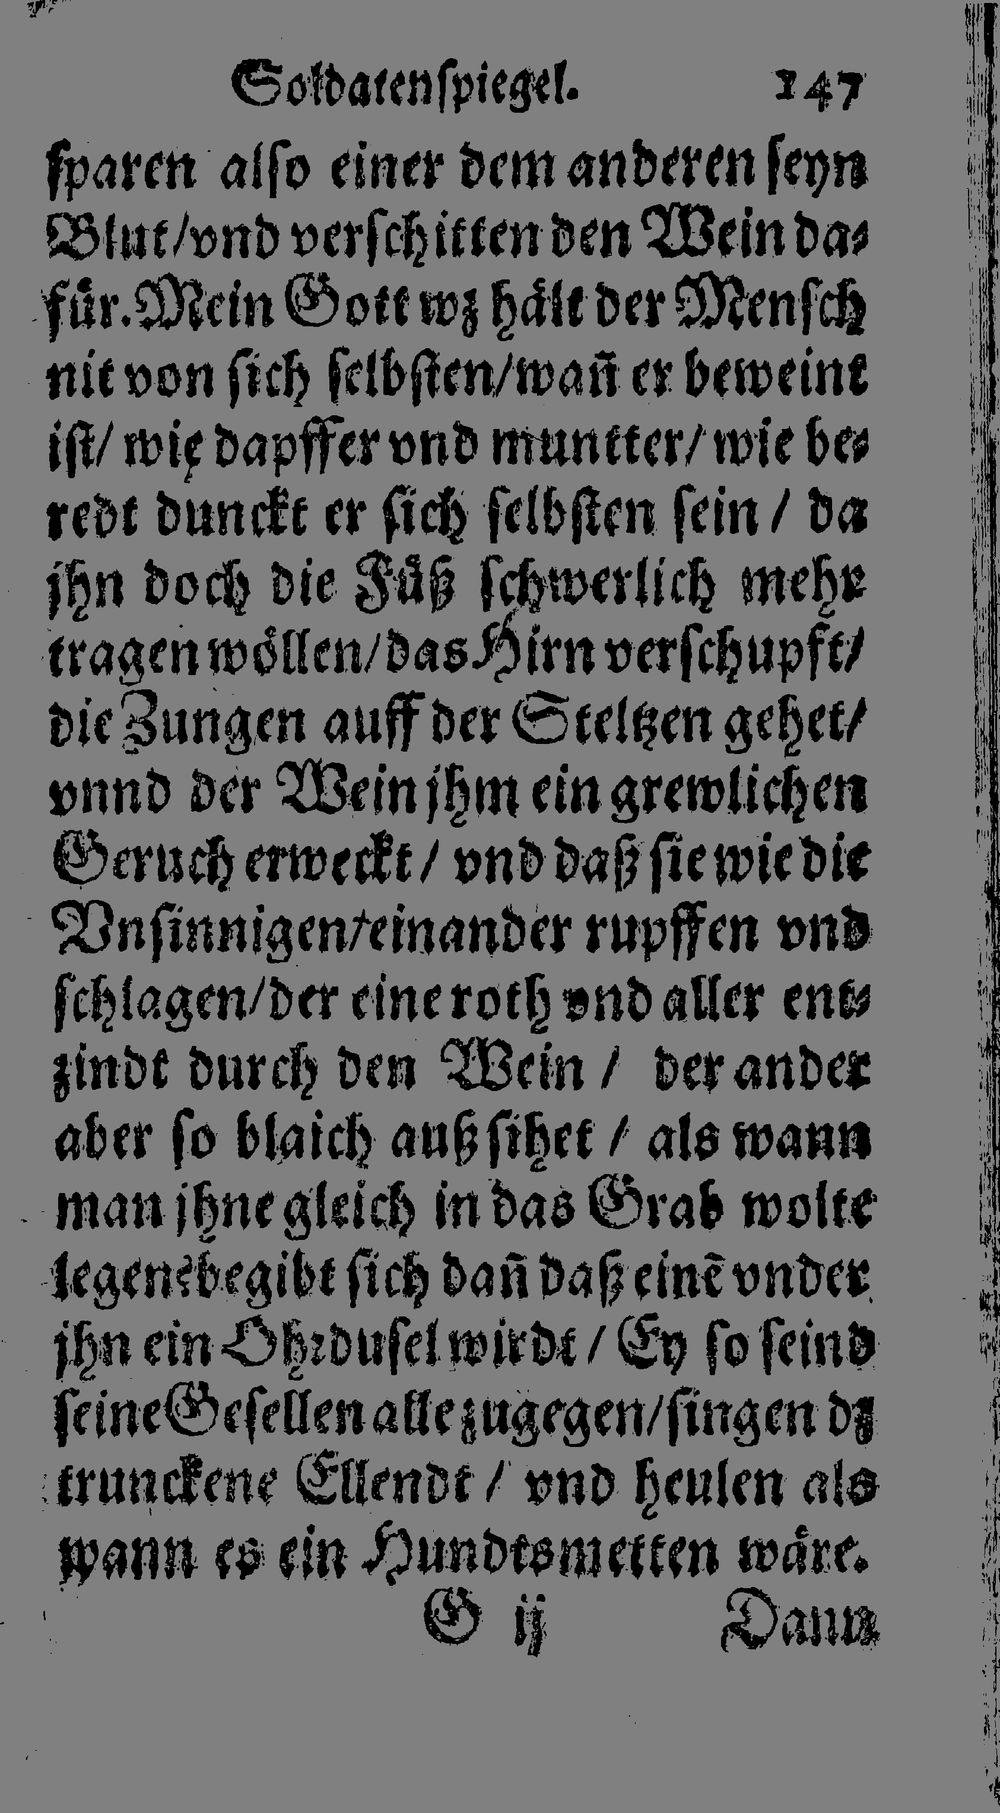 Soldatenspiegel. 147
sparen also einer dem anderen seyn
Blut/vnd verschitten den Wein da⸗
für. Mein Gott wz hält der Mensch
nit von sich selbsten/wañ er beweint
ist/ wie dapffer vnd muntter/ wie be⸗
redt dunckt er sich selbsten sein / da
jhn doch die Füß schwerlich mehr
tragen wöllen/das Hirn verschupft/
die Zungen auff der Steltzen gehet/
vnnd der Wein jhm ein grewlichen
Geruch erweckt / vnd daß sie wie die
Vnsinnigen/einander rupffen vnd
schlagen/der eine roth vnd aller ent⸗
zindt durch den Wein / der ander
aber so blaich außsihet / als wann
man jhne gleich in das Grab wolte
legen?begibt sich dañ daß einẽ vnder
jhn ein Ohrdusel wirdt / Ey so seind
seine Gesellen alle zugegen/singen dz
trunckene Ellendt / vnd heulen als
wann es ein Hundtsmetten wäre.
G ij Dann